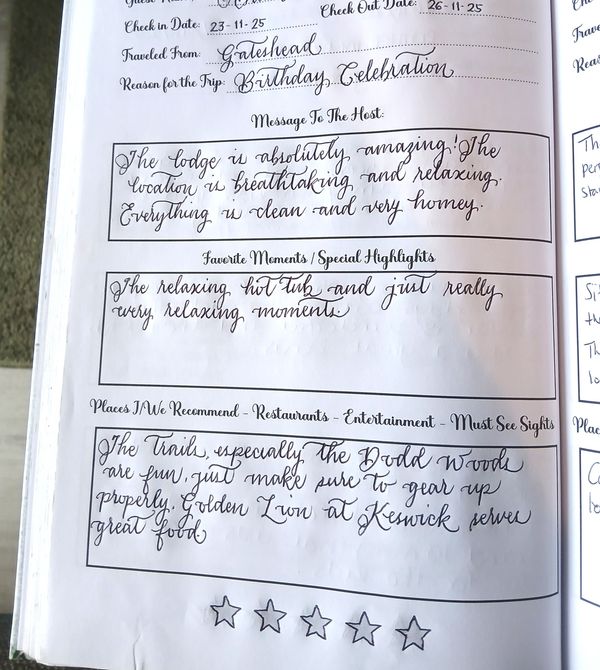 Check in Date: 23-11-25 Check Out Date: 26-11-25
Traveled From: Gateshead
Reason for the Trip: Birthday Celebration
Message To The Host:
The lodge is absolutely amazing! The
location is breathtaking and relaxing.
Everything is clean and very homey.
Favorite Moments / Special Highlights
The relaxing hot tub and just really
very relaxing moments.
Places I/We Recommend - Restaurants - Entertainment - Must See Sights
The Trails, especially the Dodd Woods
are fun, just make sure to gear up
properly. Golden Lion at Keswick serves
great food